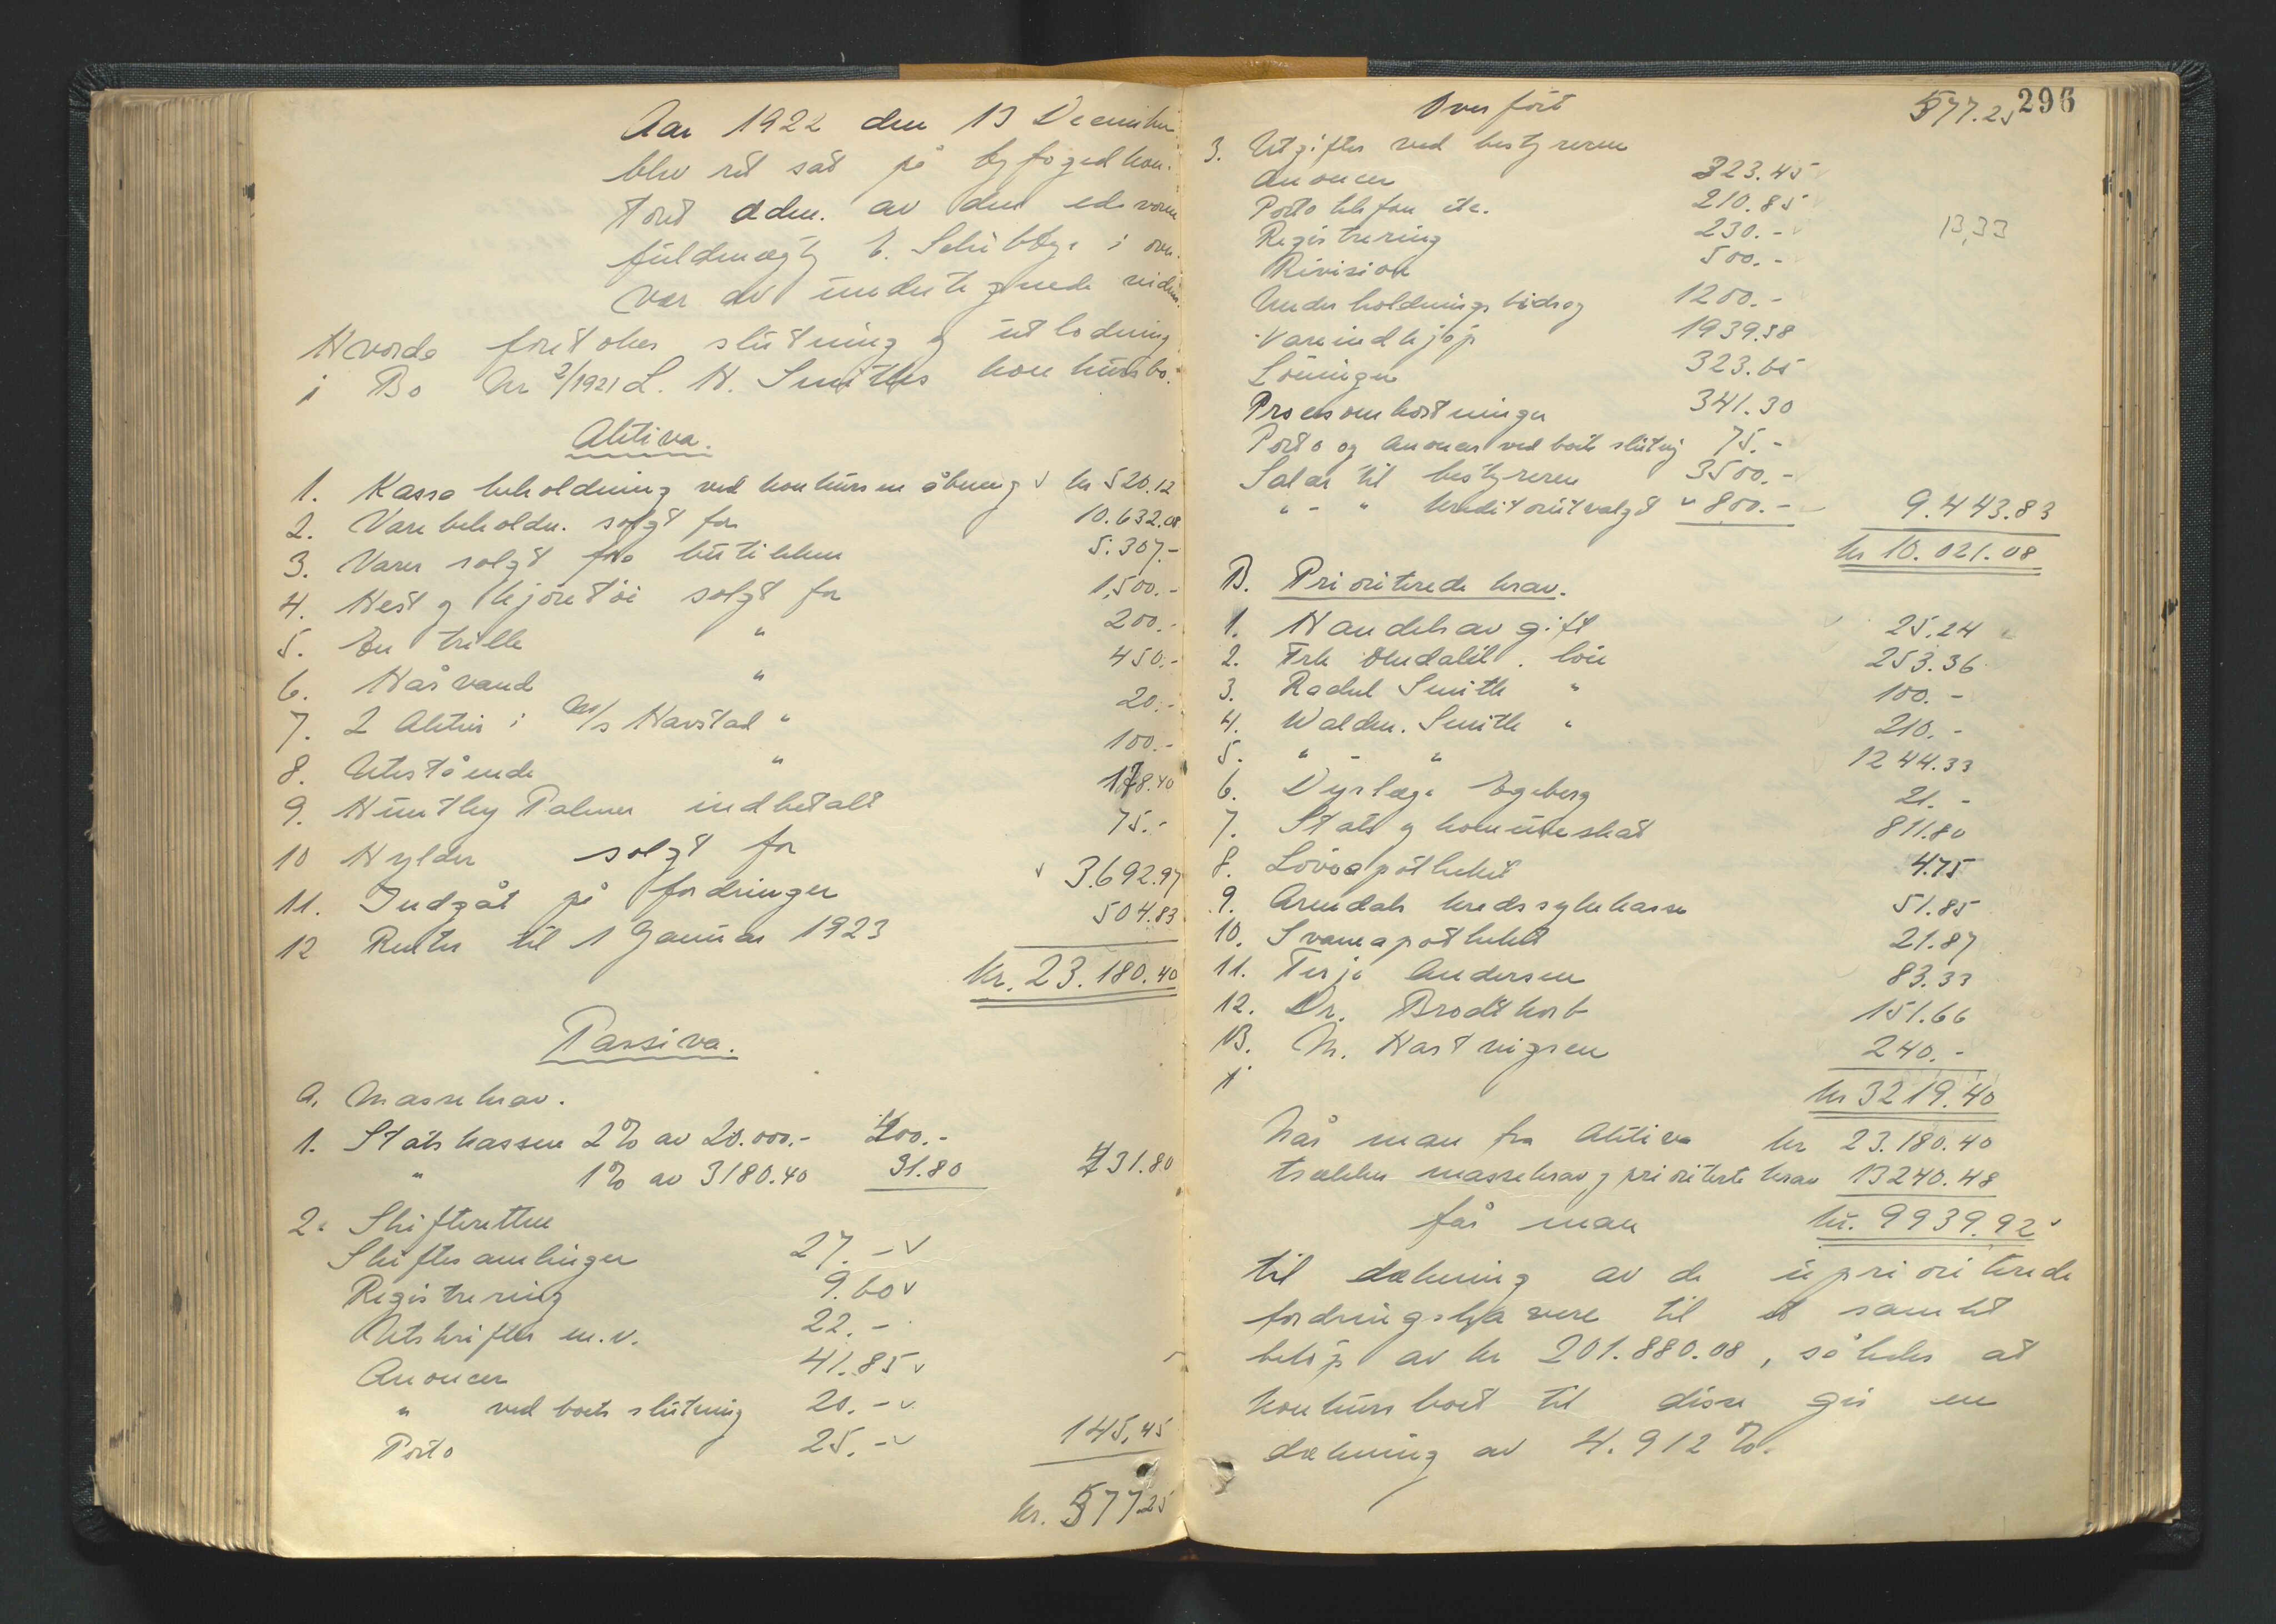 Aar 1922 den 13 December
blev ret sat på byfogedkon-
toret adm. av den edsvorne
fuldmægtig E. Schibbye i over-
vær av undertegnede vidne.
Hvorda foretokes slutning og utlodning
i Bo Nr 2/1921 L. H. Smiths konkursbo.
Aktiva.
1. Kassabeholdning ved konkursens åbning kr 520.12
2. Varebeholdn. solgt for 10.632.08
3. Varer solgt fra butikken 5.307.-
4. Hest og kjøretøi solgt for 1.500.-
5. En trille " 200.-
6. Hårvand " 450.-
7. 2 Aktier i M/s Havstad " 20.-
8. Utestående " 100.-
9. Huntley Palmer indbetalt 178.40
10 Hylder solgt for 75.-
11. Indgåt på fordringer 3.692.97
12 Renter til 1 Januar 1923 504.83
kr. 23.180.40
Passiva.
A. Massekrav.
1. Statskassen 2% av 20.000.- 400.-
" 1% av 3180.40 31.80 431.80
2. Skifteretten
Skiftesamlinger 27.-
Registrering 9.60
Utskrifter m.v. 22.-
Anoncer 41.85
" ved boets slutning 20.-
Porto 25.- 145.45
kr. 577.25
296
Overført 577.25
3. Utgifter ved bestyreren
Anoncer 323.45
Porto telefon etc. 210.85
Registrering 230.-
13,33
Revision 500.-
Underholdningsbidrag 1200.-
Vareindkjøp 1939.58
Lønninger 323.65
Procesomkostninger 341.30
Porto og anoncer ved boets slutning 75.-
Salær til bestyreren 3500.-
" - " kreditorutvalgt " 800.- 9.443.83
kr 10.021.08
B. Prioriterede krav.
1. Handelsavgift 25.24
2. Frk løn 253.36
3. Rachel Smith " 100.-
4. Waldem. Smith " 210.-
5. " - " 1244.33
6. Dyrlæge Egeberg 21.-
7. Stats og komuneskat 811.80
8. Løveapotheket 4.75
9. Arendals kredssykekasse 51.85
10. Svaneapotheket 21.87
11. Terje Andersen 83.33
12. Dr. Brodtkorb 151.66
13. N. Hartvigsen 240.-
kr 3219.40
Når man fra Aktiva kr 23.180.40
trækker massekrav og prioriterte krav 13240.48
får man kr. 9939.92
til dækning av de upriori terede
fordringshavere til et samlet
beløp av kr 201.880.08, således at
konkursboet til disse gir en
dækning av 4.912%.